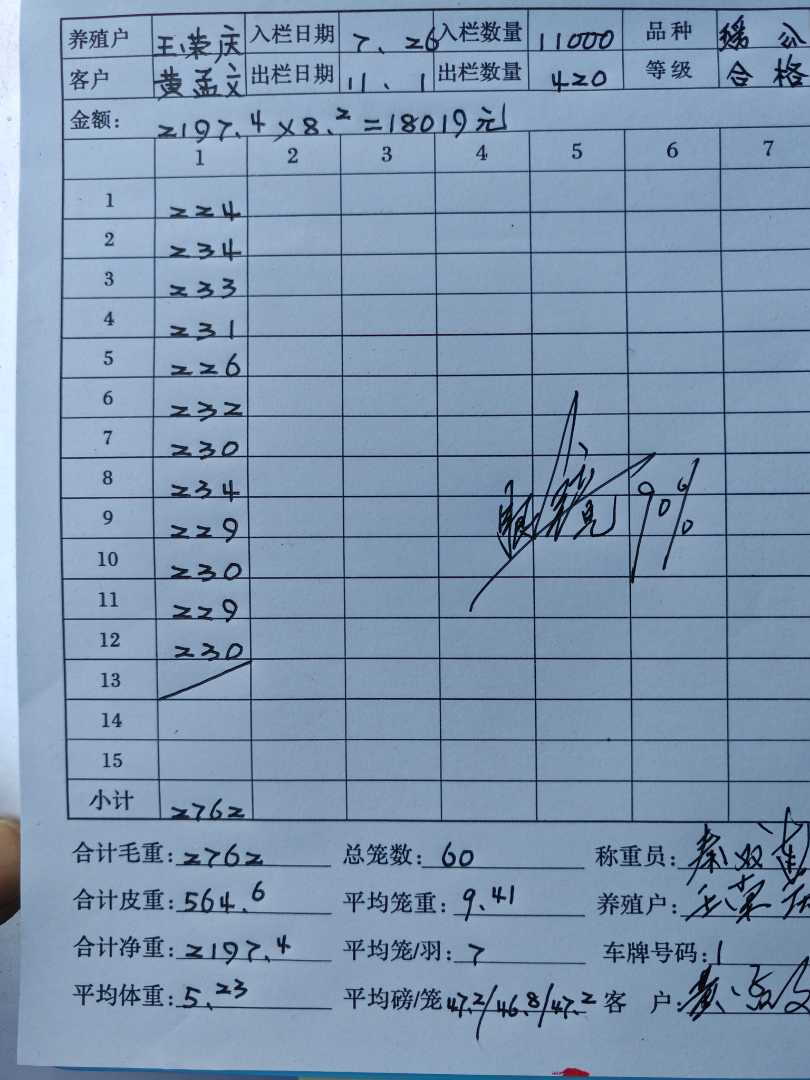 养殖户 王荣庆 入栏日期 7、26 入栏数量 11000 品种
客户 黄孟文 出栏日期 11、1 出栏数量 420 等级 合格
金额: 2197.4×8.2=18019元
1 2 3 4 5 6 7
1 224
2 234
3 233
4 231
5 226
6 232
7 230
8 234
9 229 90%
10 230
11 229
12 230
13
14
15
小计 2762
合计毛重: 2762 总笼数: 60 称重员:
合计皮重: 564.6 平均笼重: 9.41 养殖户: 王荣庆
合计净重: 2197.4 平均笼/羽: 7 车牌号码: 1
平均体重: 5.23 平均磅/笼 47.2/46.8/47.2 客户: 黄孟文